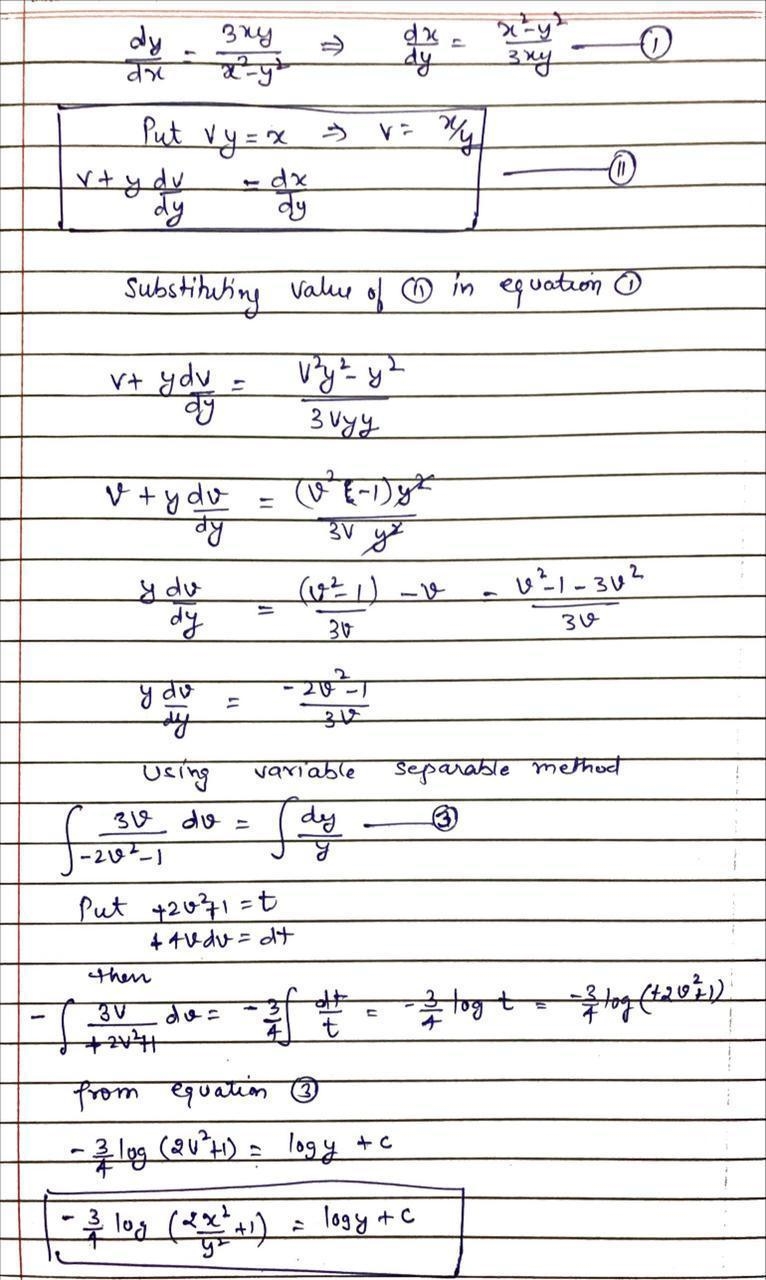 dy/dx = 3xy/x²-y² ⇒ dx/dy = x²-y²/3xy — ①
Put vy = x ⇒ v = x/y
v + y dv/dy = dx/dy — ⑪
Substituting value of ⑪ in equation ①
v + y dv/dy = v²y² - y²/3vyy
v + y dv/dy = (v² - 1) y²/3v y²
y dv/dy = (v² - 1)/3v - v = v² - 1 - 3v²/3v
y dv/dy = -2v² - 1/3v
Using variable separable method
∫ 3v/-2v²-1 dv = ∫ dy/y — ③
Put +2v²+1 = t
+4vdv = dt
then
-∫ 3v/+2v²+1 dv = -3/4 ∫ dt/t = -3/4 log t = -3/4 log (+2v²+1)
from equation ③
-3/4 log (2v²+1) = log y + c
-3/4 log (2x²/y² + 1) = log y + c